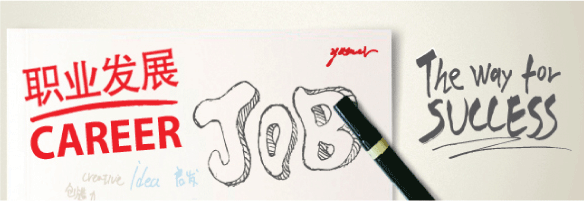 职业发展
CAREER
JOB
creative idea
The way for
SUCCESS